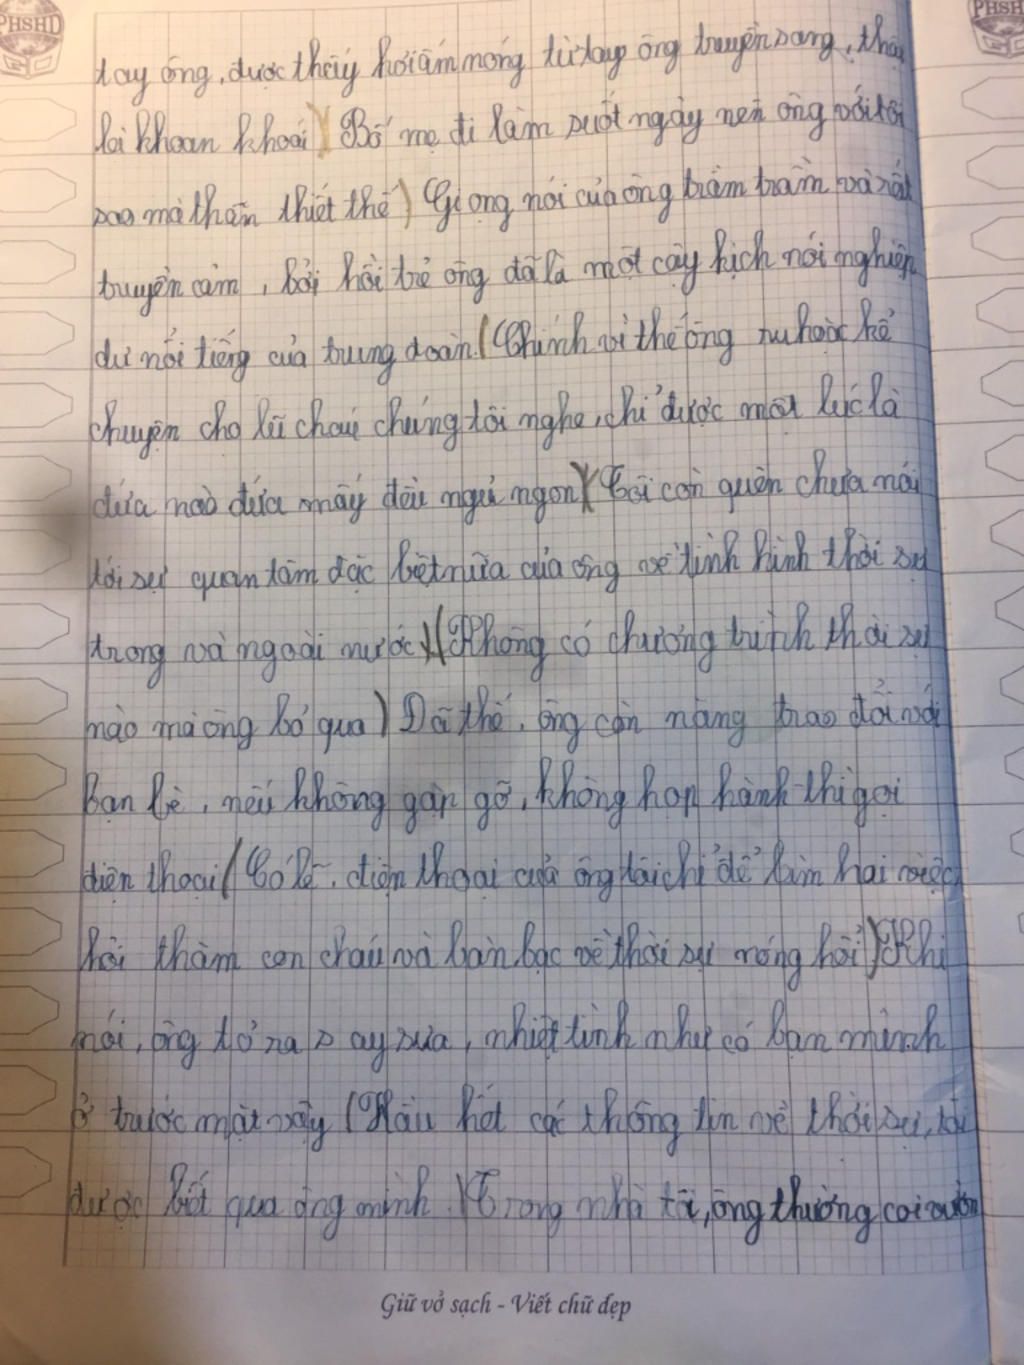 PHSHD
PHSH
tay ông, được thấy hơi ấm nóng từ tay ông truyền sang, thật
là khoan khoái) Bố mẹ đi làm suốt ngày nên ông với tôi
sao mà thân thiết thế) Giọng nói của ông trầm trầm và rất
truyền cảm, bởi hồi trẻ ông đã là một cây kịch nói nghiệp
dư nổi tiếng của trung đoàn. (Chính vì thế ông ru hoặc kể
chuyện cho lũ cháu chúng tôi nghe, chỉ được một lúc là
đứa nào đứa mấy đều ngủ ngon) (Tôi còn quên chưa nói
tới sự quan tâm đặc bệt nữa của ông về tình hình thời sự
trong và ngoài nước) (Không có chương trình thời sự
nào mà ông bỏ qua) Đã thế, ông còn năng trao đổi với
bạn bè, nếu không gặp gỡ, không họp hành thì gọi
điện thoại (Có lẽ, điện thoại của ông tôi chỉ để làm hai việc
hỏi thăm con cháu và bàn bạc về thời sự nóng hổi) Khi
nói, ông tỏ ra say sưa, nhiệt tình như có bạn mình
ở trước mặt vậy (Hầu hết các thông tin về thời sự, tôi
được bết qua ông mình.) (Trong nhà tôi, ông thường coi
Giữ vở sạch - Viết chữ đẹp